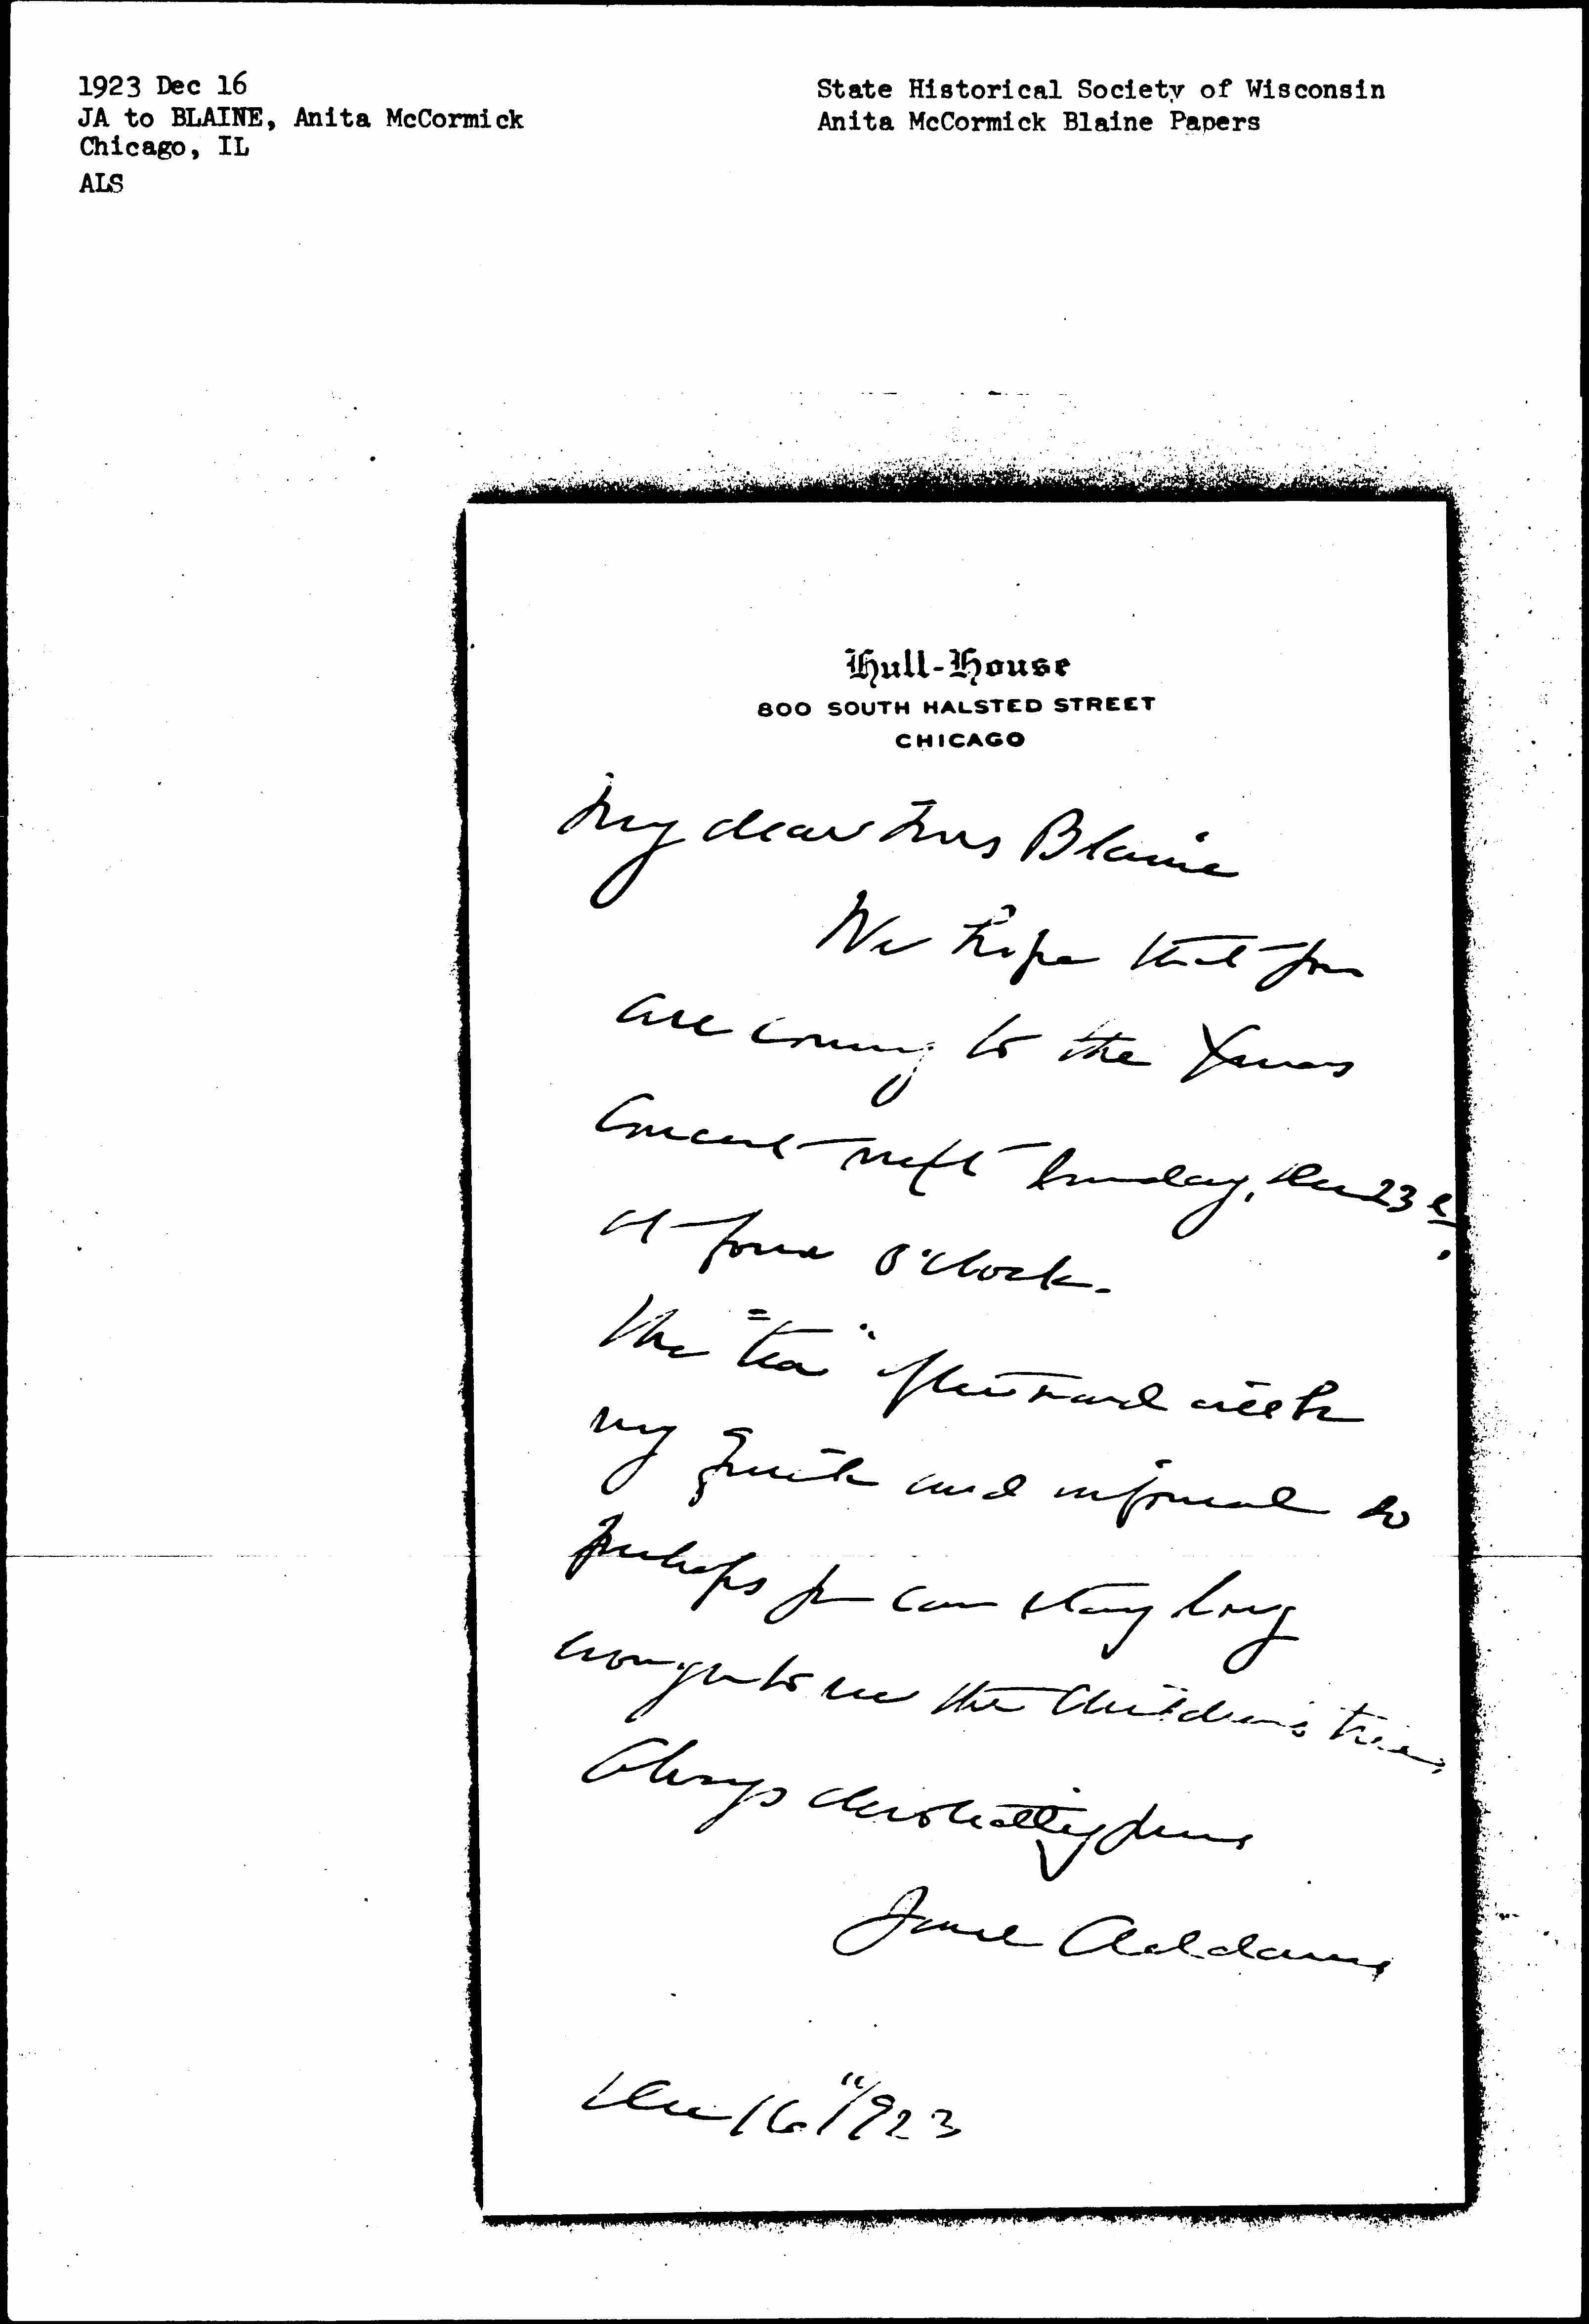 1923 Dec 16
JA to BLAINE, Anita McCormick
Chicago, IL
ALS
State Historical Society of Wisconsin
Anita McCormick Blaine Papers
Hull-House
800 SOUTH HALSTED STREET
CHICAGO
My dear Mrs Blaine
We hope that you
are coming to the Xmas
Concert next Sunday, Dec 23rd
at four o'clock.
The "tea" afterward will be
very quiet and informal so
perhaps you can stay long
enough to see the Children's tree,
Always devotedly yours
Jane Addams
Dec 16" 1923